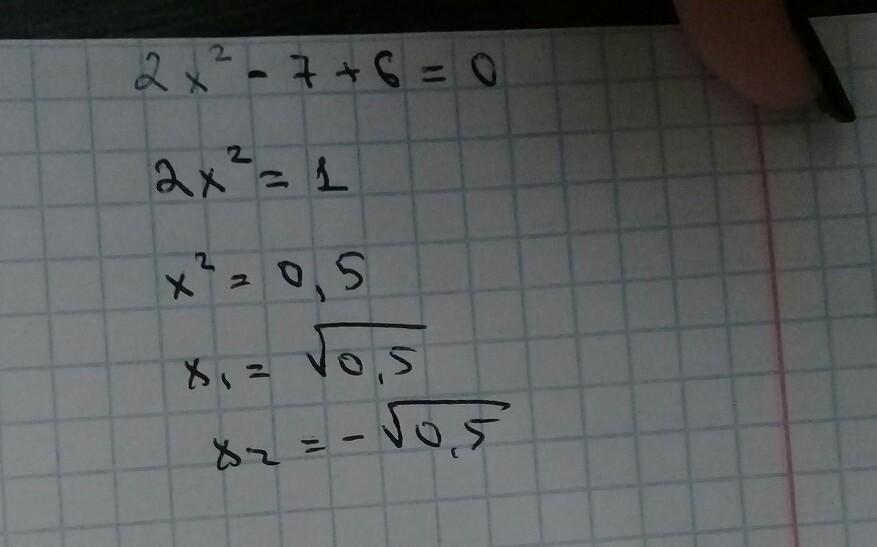 2x² - 7 + 6 = 0
2x² = 1
x² = 0,5
x₁ = √0,5
x₂ = -√0,5